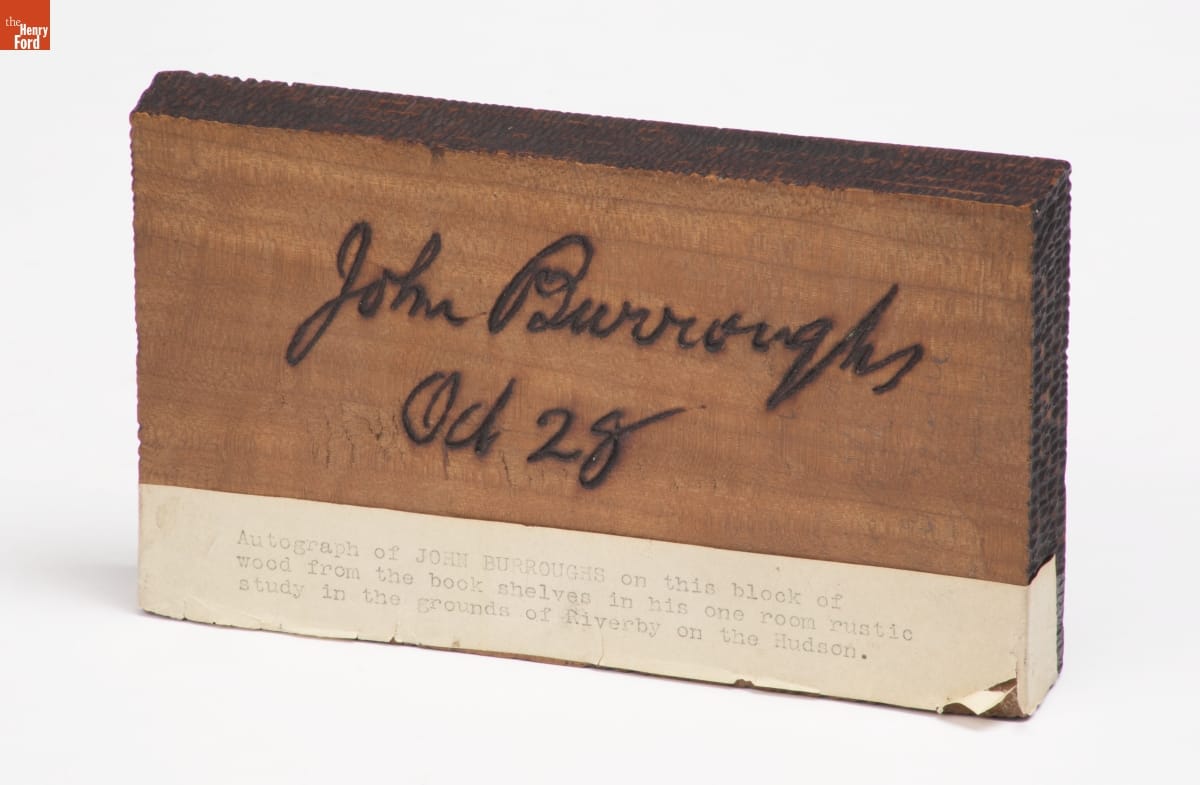 the
Henry
Ford
John Burroughs
Oct 28
Autograph of JOHN BURROUGHS on this block of
wood from the book shelves in his one room rustic
study in the grounds of Riverby on the Hudson.